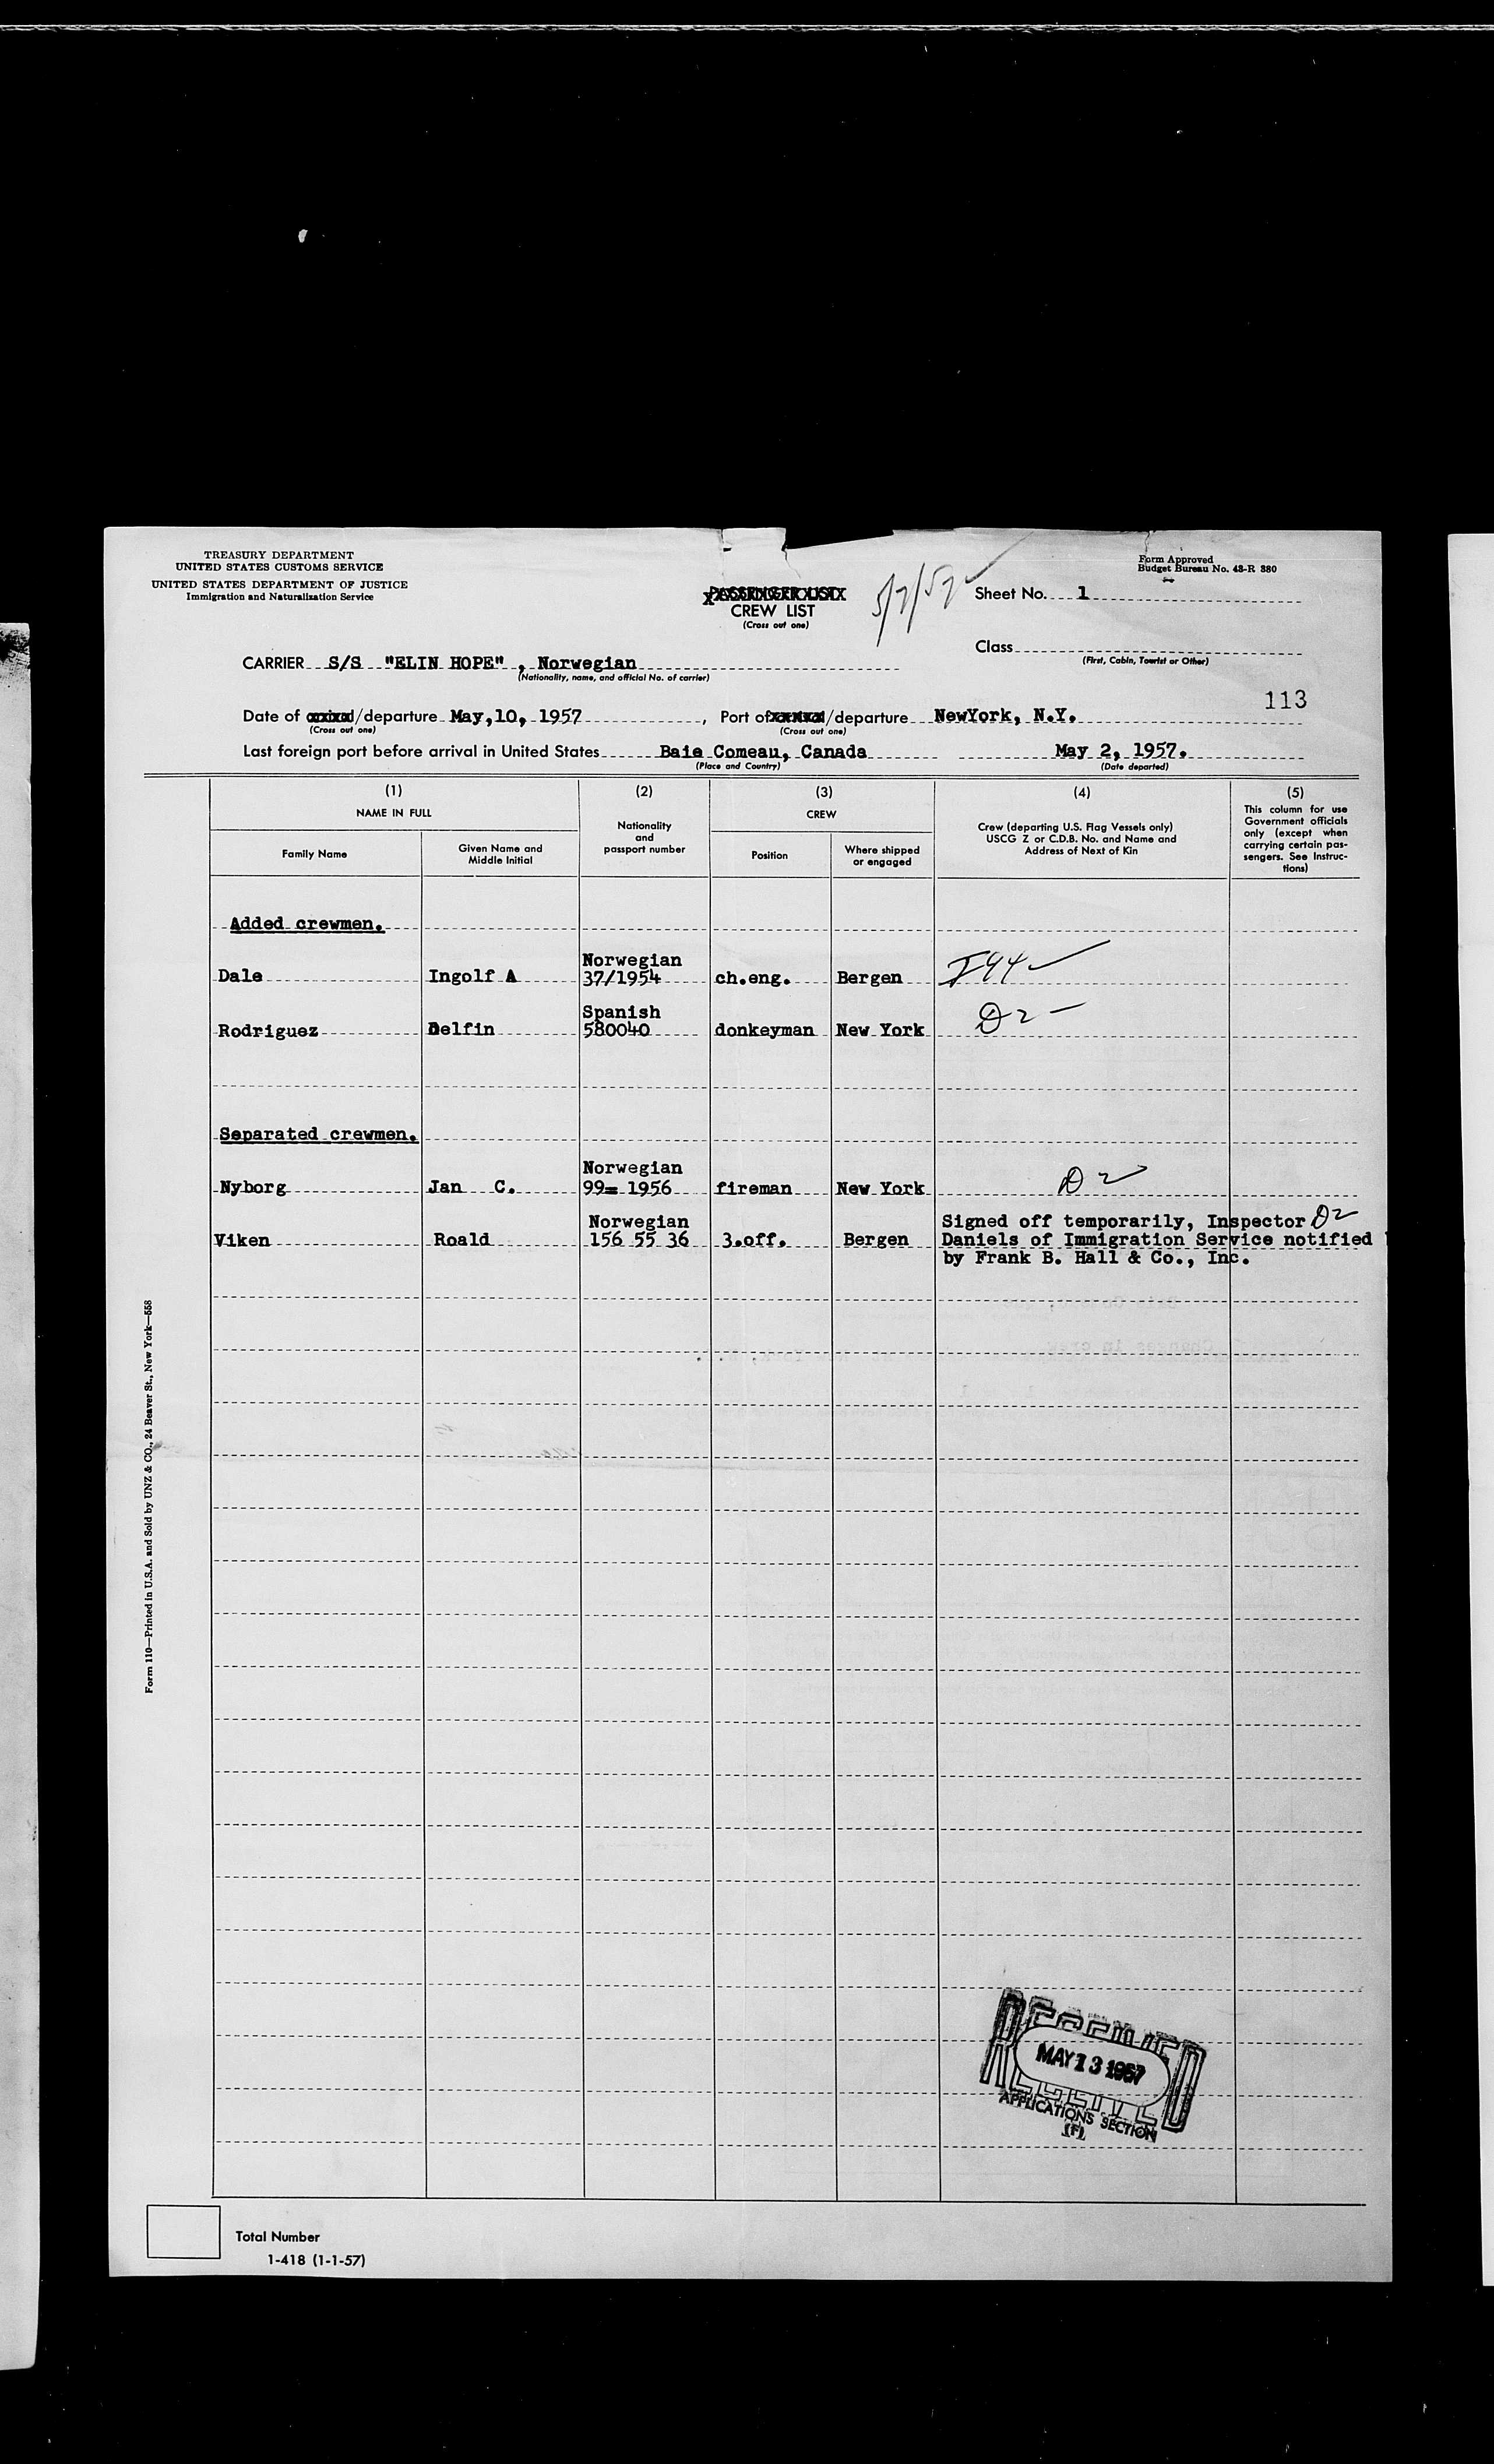 TREASURY DEPARTMENT
UNITED STATES CUSTOMS SERVICE
UNITED STATES DEPARTMENT OF JUSTICE
Immigration and Naturalization Service
Form Approved
Budget Bureau No. 43-R 380
PASSENGER LIST
CREW LIST
(Cross out one)
5/7/57
Sheet No. 1
Class
(First, Cabin, Tourist or Other)
CARRIER S/S "ELIN HOPE" , Norwegian
(Nationality, name, and official No. of carrier)
113
Date of /departure May,10, 1957 , Port of /departure NewYork, N.Y.
(Cross out one) (Cross out one)
Last foreign port before arrival in United States Baie Comeau, Canada May 2, 1957.
(Place and Country) (Date departed)
(1) (2) (3) (4) (5)
NAME IN FULL
Nationality
and
passport number
CREW
Crew (departing U.S. Flag Vessels only)
USCG Z or C.D.B. No. and Name and
Address of Next of Kin
This column for use
Government officials
only (except when
carrying certain pas-
sengers. See Instruc-
tions)
Family Name
Given Name and
Middle Initial
Position
Where shipped
or engaged
Added crewmen.
Norwegian
Dale Ingolf A 37/1954 ch.eng. Bergen
Spanish
Rodriguez Delfin 580040 donkeyman New York D2
Separated crewmen.
Norwegian
Nyborg Jan C. 99= 1956 fireman New York D2
Norwegian Signed off temporarily, Inspector D2
Viken Roald 156 55 36 3.off. Bergen Daniels of Immigration Service notified
by Frank B. Hall & Co., Inc.
Form 110—Printed in U.S.A. and Sold by UNZ & CO., 24 Beaver St., New York—558
RECEIVED
MAY 13 1957
APPLICATIONS SECTION
(F)
Total Number
1-418 (1-1-57)